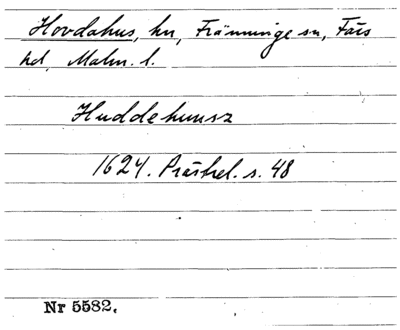 Hovdahus, hn, Fränninge sn, Färs
hd, Malm. l.
Huddehunsz
1624. Präsrel. s. 48
Nr 5582.